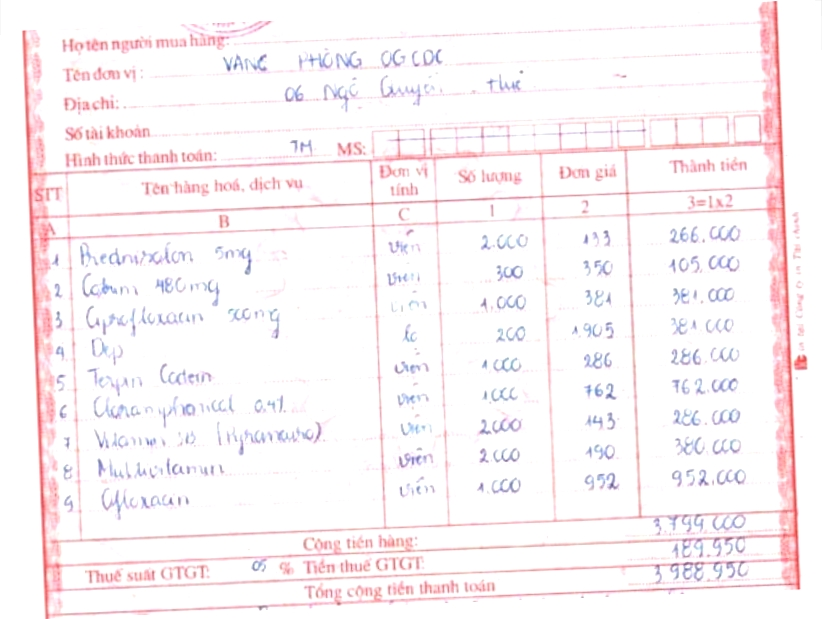 Họ tên người mua hàng:
Tên đơn vị: VĂNG PHÒNG OGCDC
Địa chỉ: 06 Ngô Quyền. Huế
Số tài khoản
Hình thức thanh toán: TM MS:
STT Tên hàng hoá, dịch vụ Đơn vị tính Số lượng Đơn giá Thành tiền
A B C 1 2 3=1x2
1 Prednisolon 5mg viên 2.000 133 266.000
2 Cotrim 480mg viên 300 350 105.000
3 Ciprofloxacin 500mg viên 1.000 381 381.000
4 Dep lọ 200 1.905 381.000
5 Terpin Codein viên 1000 286 286.000
6 Cloramphenicol 0.4% viên 1000 762 762.000
7 Vitamin 3B viên 2000 143 286.000
8 Multivitamin viên 2000 190 380.000
9 Ofloxacin viên 1.000 952 952.000
Cộng tiền hàng: 3.799.000
Thuế suất GTGT: 05 % Tiền thuế GTGT: 189.950
Tổng cộng tiền thanh toán 3.988.950